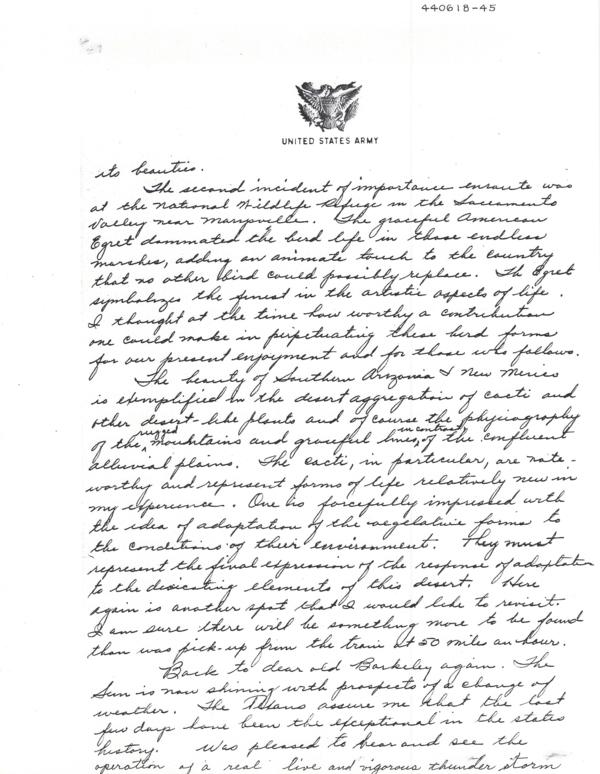 440618-45
UNITED STATES ARMY
its beauties.
The second incident of importance enroute was
at the National Wildlife Refuge in the Sacramento
Valley near Marysville. The graceful American
Egret dommated the bird life in those endless
marshes, adding an animate touch to the country
that no other bird could possibly replace. Th Egret
symbolizes the finest in the artistic aspects of life.
I thought at the time how worthy a contribution
one could make in perpetuating these bird forms
for our present enjoyment and for those who follows.
The beauty of Southern Arizonia & New Mexico
is exemplified in the desert aggregation of cacti and
other desert-like plants and of course the physiography
of the rugged mountains and graceful lines, in contrast, of the confluent
alluvial plains. The cacti, in particular, are note-
worthy and represent forms of life relatively new in
my experience. One is forcefully impressed with
the idea of adaptation of the vegetative forms to
the conditions of their environment. They must
represent the final expression of the response of adaptation
to the desicating elements of this desert. Here
again is another spot that I would like to revisit.
I am sure there will be something more to be found
than was pick-up from the train at 50 mile an hour.
Back to dear old Barkeley again. The
Sun is now shining with prospects of a change of
weather. The Texans assure me that the last
few days have been the exceptional in the states
history. Was pleased to hear and see the
operation of a real live and vigorous thunder storm